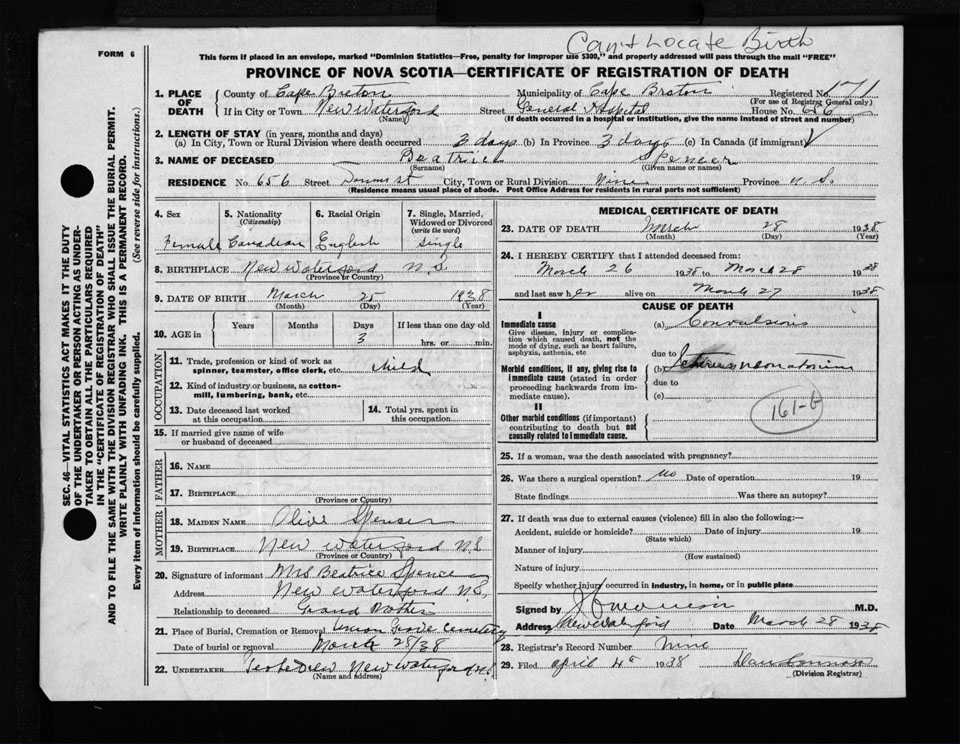 Can't Locate Birth
FORM 6
This form if placed in an envelope, marked "Dominion Statistics—Free, penalty for improper use $300," and properly addressed will pass through the mail "FREE"
PROVINCE OF NOVA SCOTIA—CERTIFICATE OF REGISTRATION OF DEATH
1. PLACE OF DEATH
County of Cape Breton Municipality of Cape Breton Registered No. 171
(For use of Registrar General only)
If in City or Town New Waterford Street General Hospital House No. 656
(Name) (If death occurred in a hospital or institution, give the name instead of street and number)
2. LENGTH OF STAY (in years, months and days)
(a) In City, Town or Rural Division where death occurred 3 days (b) In Province 3 days (c) In Canada (if immigrant)
3. NAME OF DECEASED Beatrice Spencer
(Surname) (Given name or names)
RESIDENCE No. 656 Street City, Town or Rural Division Province N.S.
(Residence means usual place of abode. Post Office Address for residents in rural parts not sufficient)
4. Sex
Female
5. Nationality
(Citizenship)
Canadian
6. Racial Origin
English
7. Single, Married, Widowed or Divorced
(write the word)
Single
8. BIRTHPLACE New Waterford N.S
(Province or Country)
9. DATE OF BIRTH March 25 1938
(Month) (Day) (Year)
10. AGE in
Years Months Days If less than one day old
3 hrs. or min.
OCCUPATION
11. Trade, profession or kind of work as spinner, teamster, office clerk, etc. child
12. Kind of industry or business, as cotton-mill, lumbering, bank, etc.
13. Date deceased last worked at this occupation
14. Total yrs. spent in this occupation
15. If married give name of wife or husband of deceased
FATHER
16. NAME
17. BIRTHPLACE
(Province or Country)
MOTHER
18. MAIDEN NAME Olive Spencer
19. BIRTHPLACE New Waterford N.S
(Province or Country)
20. Signature of informant Mrs Beatrice Spencer
Address New Waterford N.S,
Relationship to deceased Grand Mother
21. Place of Burial, Cremation or Removal Union Grove Cemetery
Date of burial or removal March 28/38
22. UNDERTAKER New Waterford N.S.
(Name and address)
MEDICAL CERTIFICATE OF DEATH
23. DATE OF DEATH March 28 1938
(Month) (Day) (Year)
24. I HEREBY CERTIFY that I attended deceased from:
March 26 1938 to March 28 1938
and last saw her alive on March 27 1938
CAUSE OF DEATH
I
Immediate cause
Give disease, injury or complication which caused death, not the mode of dying, such as heart failure, asphyxia, asthenia, etc
(a) Convulsions
due to
Morbid conditions, if any, giving rise to immediate cause (stated in order proceeding backwards from immediate cause).
(b) Icterus neonatorium
due to
(c)
161-b
II
Other morbid conditions (if important) contributing to death but not causally related to immediate cause.
25. If a woman, was the death associated with pregnancy?
26. Was there a surgical operation? No Date of operation 19
State findings Was there an autopsy?
27. If death was due to external causes (violence) fill in also the following:—
Accident, suicide or homicide? Date of injury 19
(State which)
Manner of injury
(How sustained)
Nature of injury
Specify whether injury occurred in industry, in home, or in public place
Signed by M.D.
Address New Waterford Date March 28 1938
28. Registrar's Record Number Nine
29. Filed April 4th 1938
(Division Registrar)
SEC. 46—VITAL STATISTICS ACT MAKES IT THE DUTY OF THE UNDERTAKER OR PERSON ACTING AS UNDERTAKER TO OBTAIN ALL THE PARTICULARS REQUIRED IN THE "CERTIFICATE OF REGISTRATION OF DEATH" AND TO FILE THE SAME WITH THE DIVISION REGISTRAR WHO SHALL ISSUE THE BURIAL PERMIT.
WRITE PLAINLY WITH UNFADING INK. THIS IS A PERMANENT RECORD.
Every item of information should be carefully supplied. (See reverse side for instructions.)